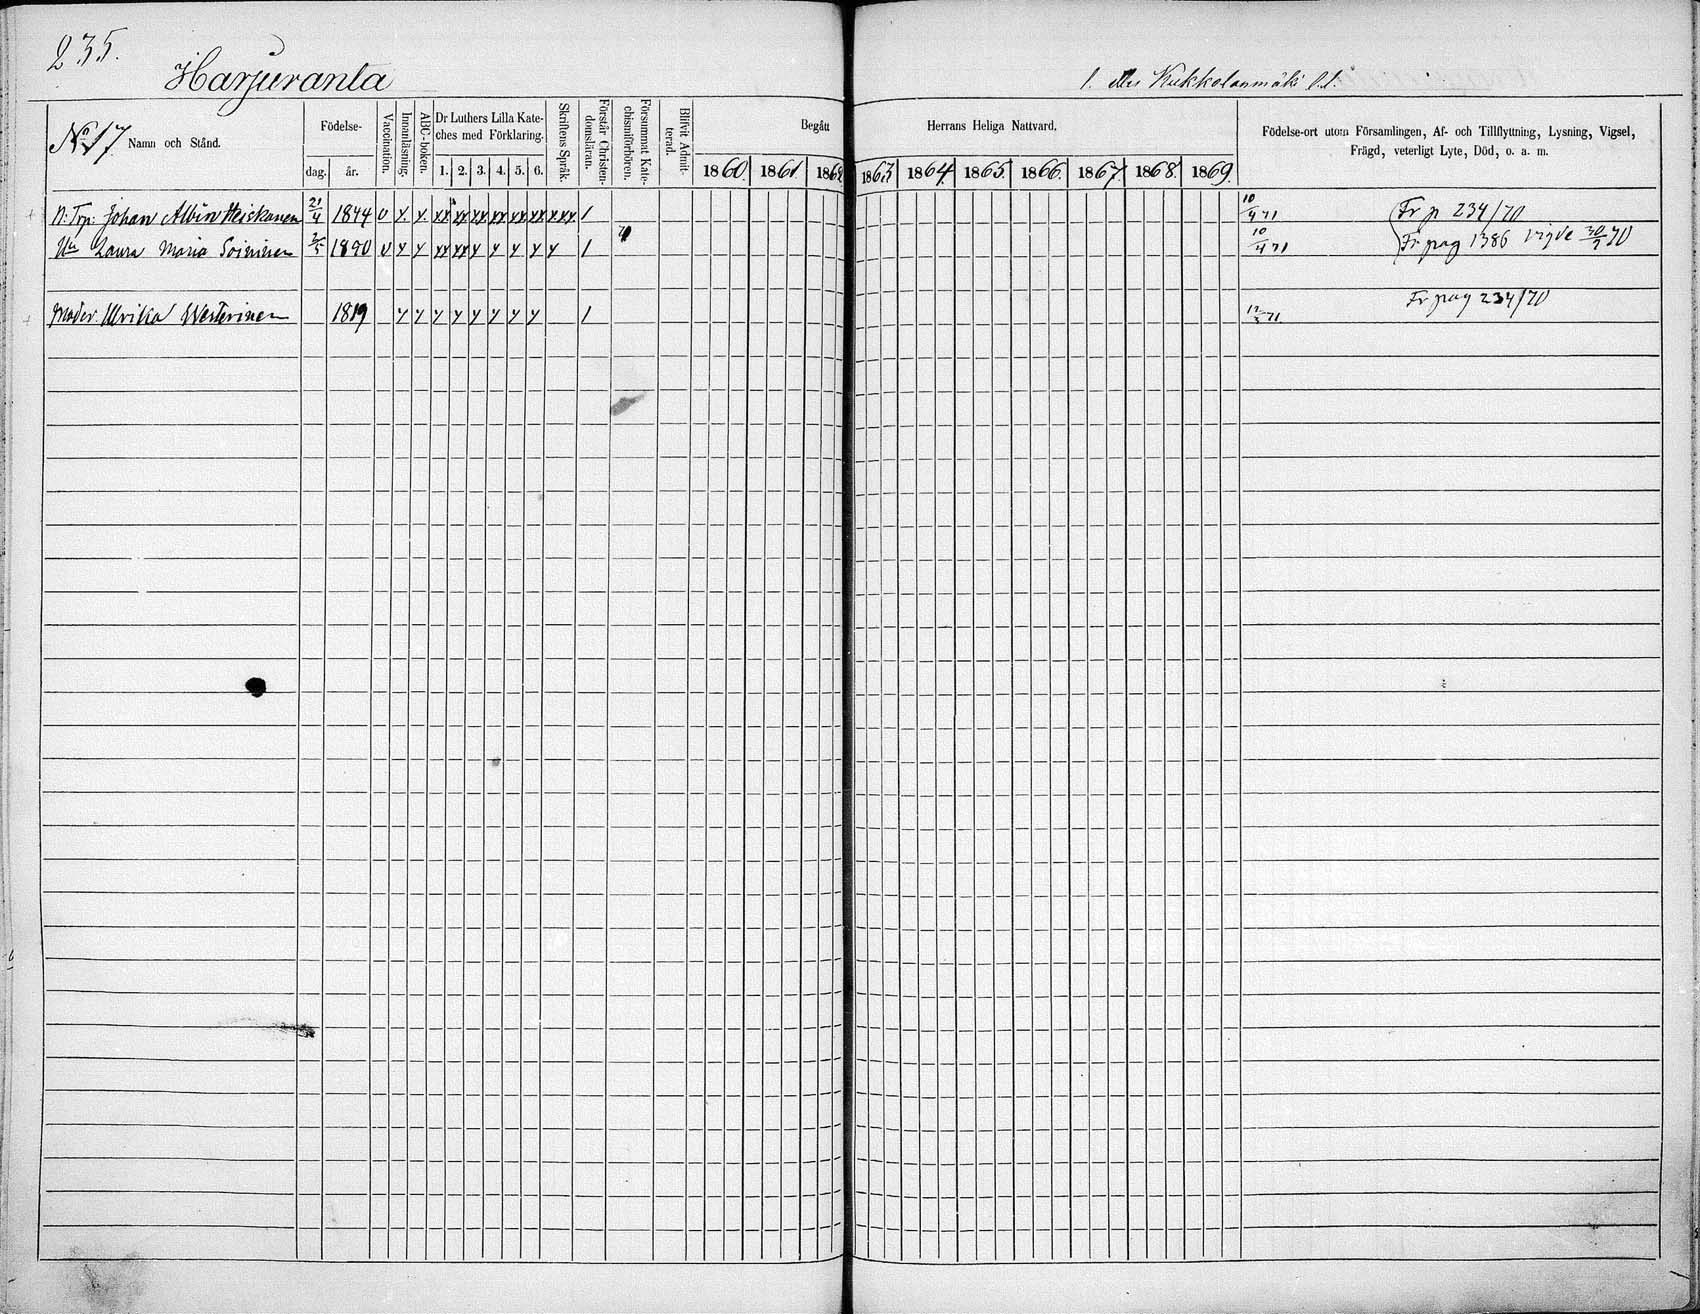 235.
Harjuranta
1. eller Kukkolanmäki
No 17 Namn och Stånd.
Födelse-
dag. år.
Vaccination.
Innanläsning.
ABC-boken.
Dr Luthers Lilla Kate-
ches med Förklaring.
1. 2. 3. 4. 5. 6.
Skriftens Språk.
Förstår Christen-
domsläran.
Försummat Kate-
chismiförhören.
Blifvit Admit-
terad.
Begått Herrans Heliga Nattvard.
1860. 1861 1862 1863 1864. 1865. 1866. 1867 1868. 1869.
Födelse-ort utom Församlingen, Af- och Tillflyttning, Lysning, Vigsel,
Frägd, veterligt Lyte, Död, o. a. m.
Johan Albin Heiskanen 21/4 1844 v x x xx xx xx xx xx xx xxx 1 10/4 71 Fr p 234/70
Hu Laura Maria Soininen 1840 v x x xx xx x x x x x 1 10/4 71 Fr pag 1386 vigde 70
Moder Ulrika Westerinen 1819 x x x x x x x x 1 71 Fr pag 234/70